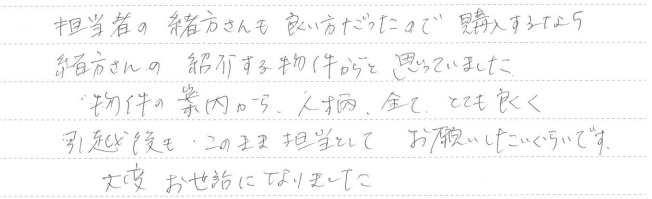 担当者の 緒方さんも 良い方だったので 購入するなら
緒方さんの 紹介する物件からと 思っていました。
物件の 案内から、人柄、全て、とても良く
引越後も、このまま担当として お願いしたいぐらいです。
大変 お世話になりました